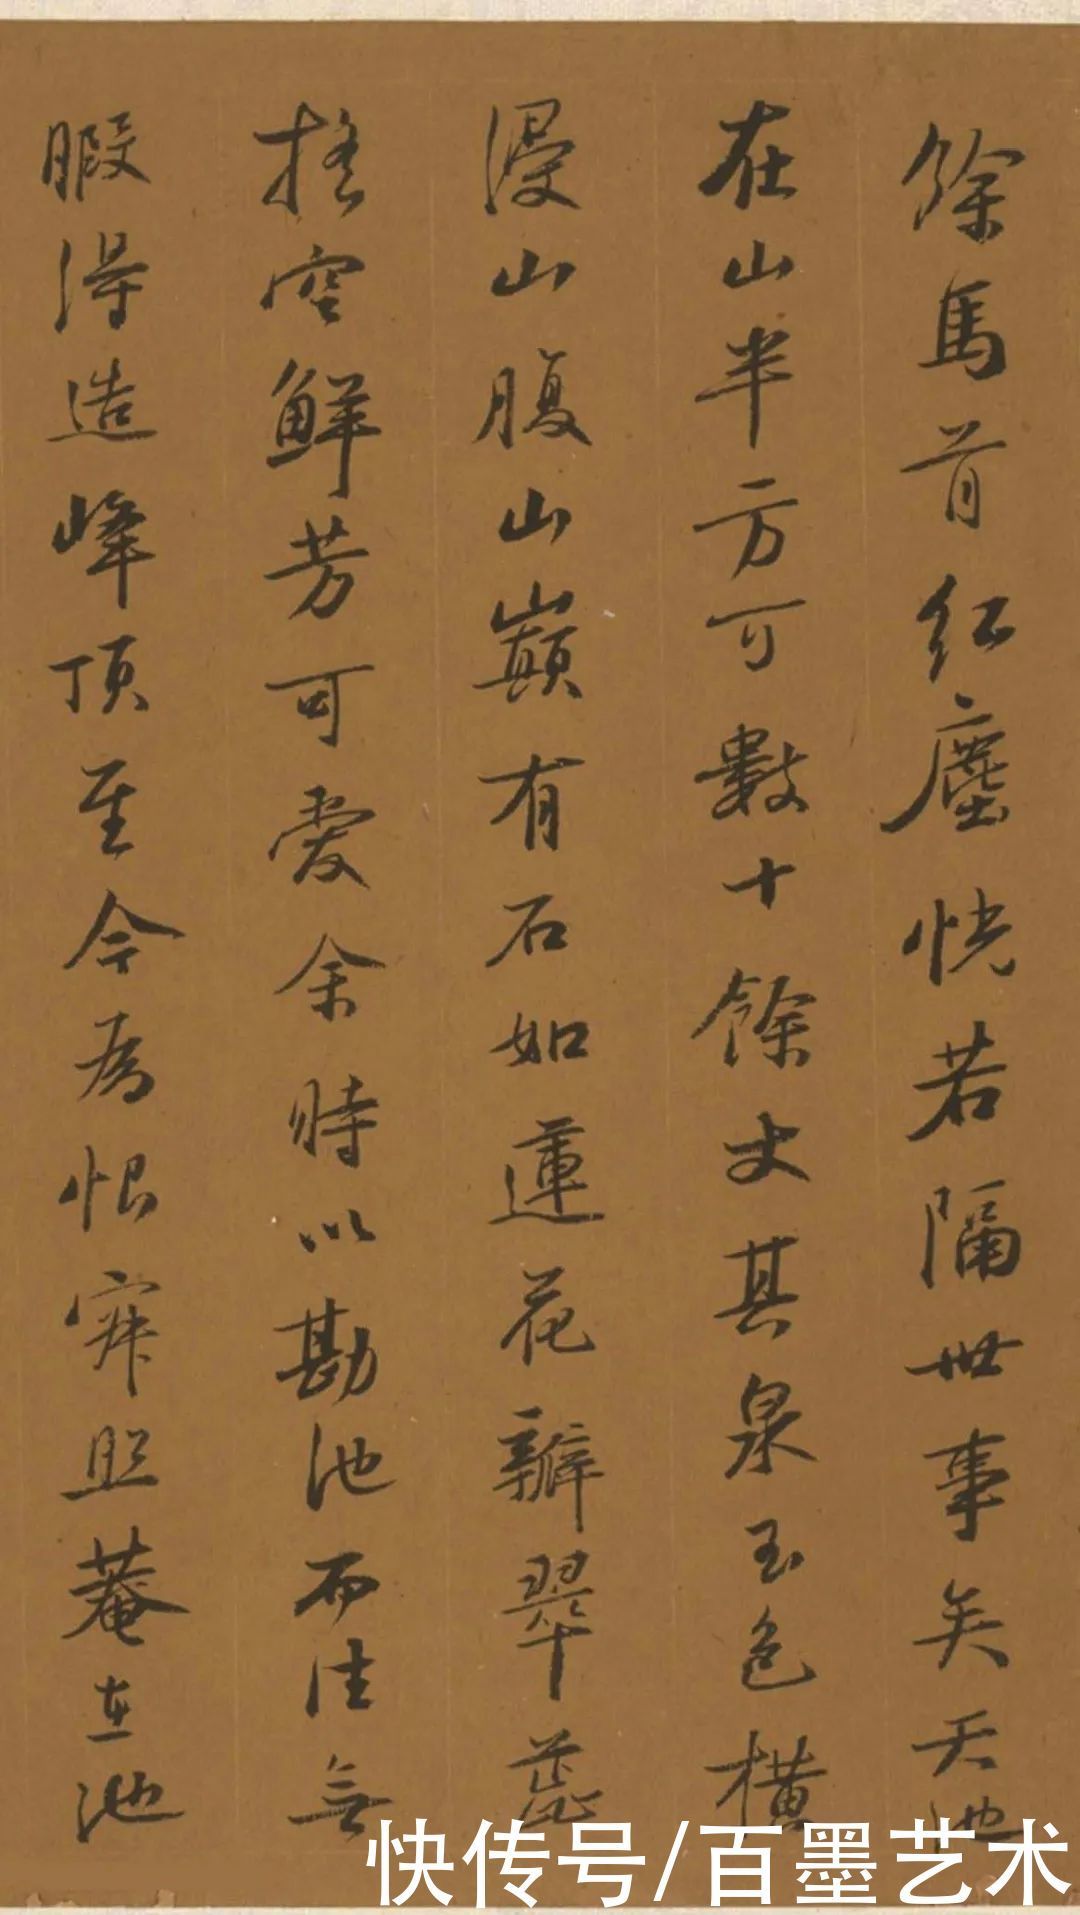 餘馬首紅塵恍若隔世事矣天池
在山半方可數十餘丈其泉玉色橫
浸山腹山巔有石如蓮花瓣翠蕊
搖空鮮芳可愛余時以勘池而往無
暇得造峰頂至今為恨寂照菴在池
快传号/百墨艺术